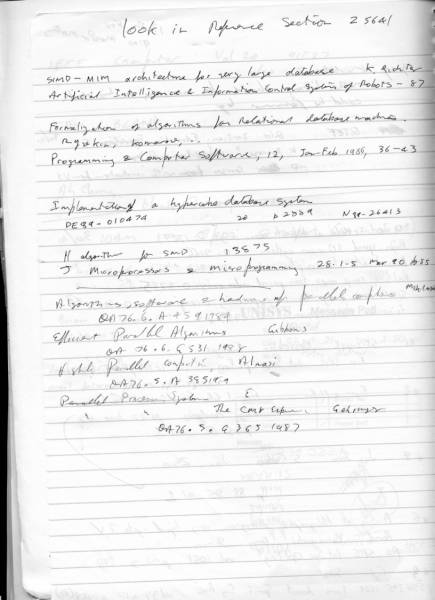 look in Reference Section Z 5641
SIMD - MIM architecture for very large database K Richter
Artificial Intelligence & Information Control System of Robots - 87
Formalization of algorithms for Relational database machine,
Programming & Computer Software, 12, Jan-Feb 1986, 36-43
Implementation of a hypercube database system
DE89-010474 20 N90-26413
H algorithm for SIMD 13575
J Microprocessors & microprogramming 28.1-5 Mar 90
Algorithms, software & hardware of parallel computers
QA 76.6.A
Efficient Parallel Algorithms Gibbons
QA 76.6.G531 1988
Highly Parallel computing, Almasi
QA76.5.A
Parallel Process System E
" " The CMST Gehringer
QA76.5.G365 1987